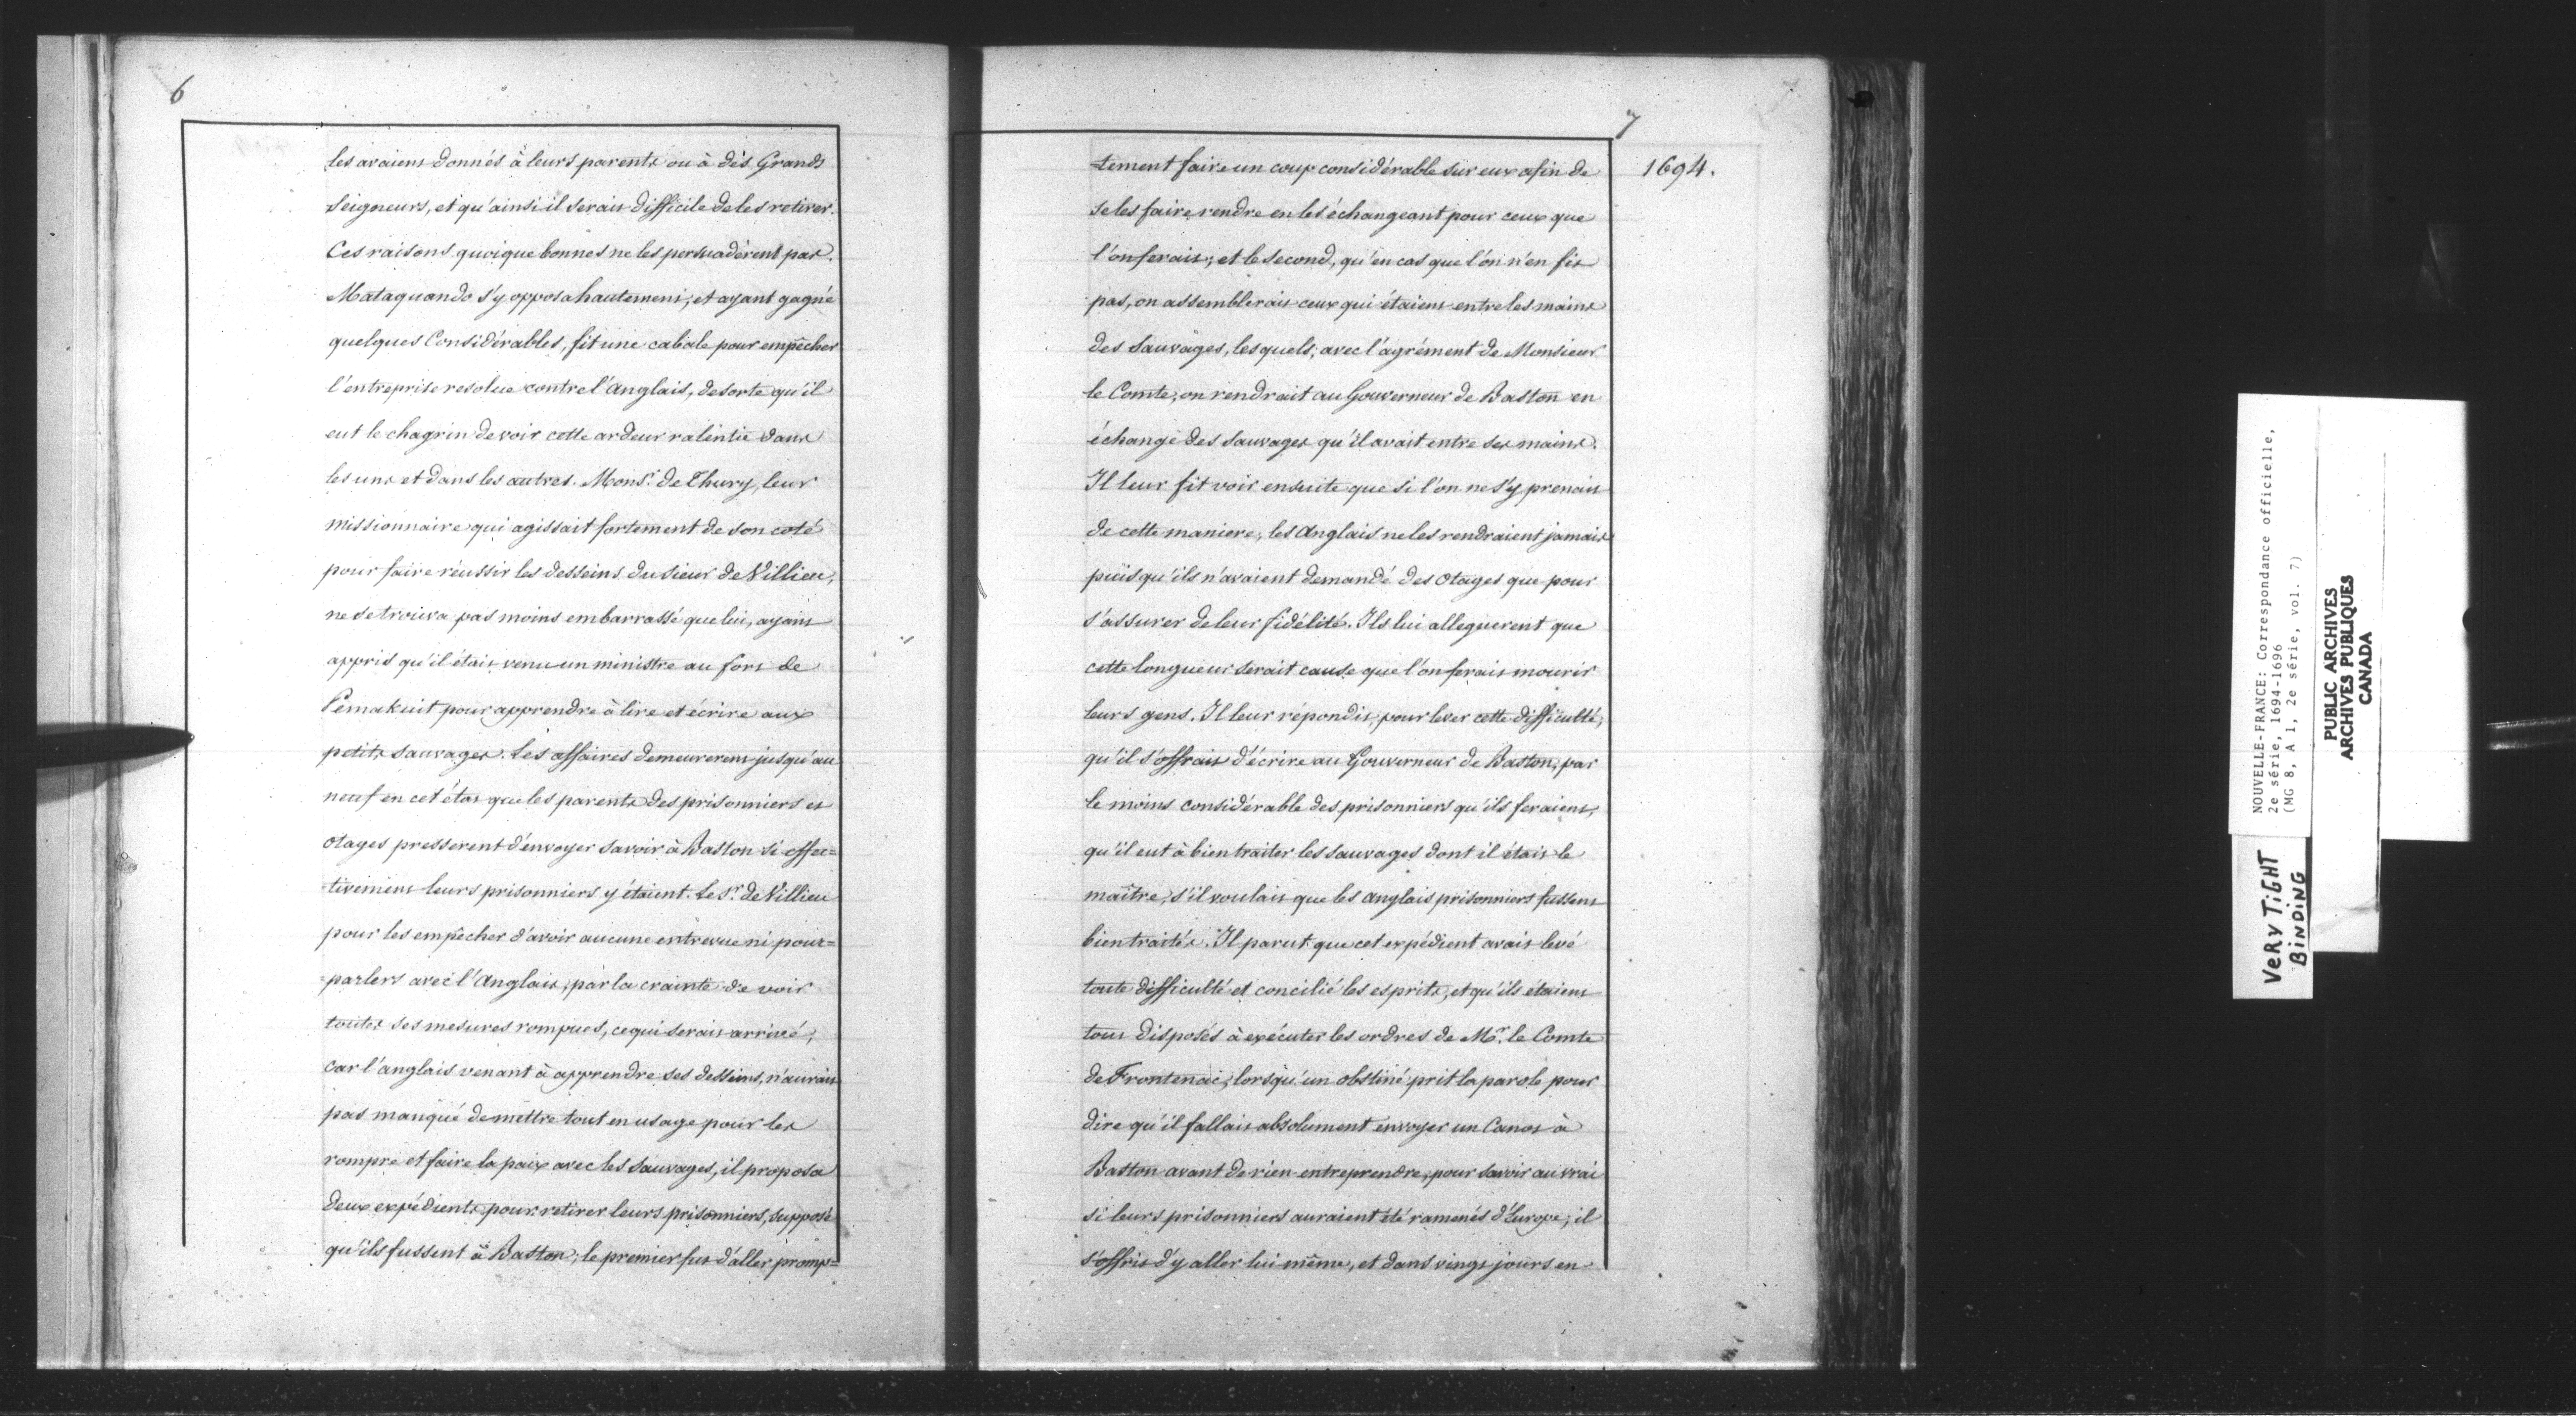 6
les avaient donnés à leurs parents ou à des Grands
Seigneurs, et qu'ainsi il serait difficile de les retirer.
Ces raisons quoique bonnes ne les persuadèrent pas.
Mataquando s'y opposa hautement, et ayant gagné
quelques Considérables, fit une cabale pour empêcher
l'entreprise resolue contre l'Anglais, desorte qu'il
eut le chagrin de voir cette ardeur ralentie dans
les uns et dans les autres. Mons.r de Thury, leur
missionnaire qui agissait fortement de son coté
pour faire réussir les desseins du sieur de Villieu,
ne se trouva pas moins embarrassé que lui, ayant
appris qu'il était venu un ministre au fort de
Pemakuit pour apprendre à lire et écrire aux
petits sauvages. Les affaires demeurerent jusqu'au
neuf en cet état que les parents des prisonniers et
otages presserent d'envoyer savoir à Baston si effec=
tivement leurs prisonniers y étaient. Le S.r de Villieu
pour les empêcher d'avoir aucune entrevue ni pour=
=parlers avec l'Anglais, par la crainte de voir
toutes ses mesures rompues, ce qui serait arrivé,
car l'anglais venant à apprendre ses desseins, n'aurait
pas manqué de mettre tout en usage pour les
rompre et faire la paix avec les sauvages, il proposa
deux expédients pour retirer leurs prisonniers, supposé
qu'ils fussent à Baston; le premier fut d'aller promp=
7
1694.
=tement faire un coup considérable sur eux afin de
se les faire rendre en les échangeant pour ceux que
l'on ferait; et le second, qu'en cas que l'on n'en fit
pas, on assemblerait ceux qui étaient entre les mains
des Sauvages, lesquels, avec l'agrément de Monsieur
le Comte, on rendrait au Gouverneur de Baston en
échange des sauvages qu'il avait entre ses mains.
Il leur fit voir ensuite que si l'on ne s'y prenait
de cette maniere, les Anglais ne les rendraient jamais
puisqu'ils n'avaient demandé des otages que pour
s'assurer de leur fidélité. Ils lui alleguerent que
cette longueur serait cause que l'on ferait mourir
leurs gens. Il leur répondit, pour lever cette difficulté,
qu'il s'offrait d'écrire au Gouverneur de Baston, par
le moins considérable des prisonniers qu'ils feraient,
qu'il eut à bien traiter les sauvages dont il était le
maître, s'il voulait que les anglais prisonniers fussent
bien traités. Il parut que cet expédient avait levé
toute difficulté et concilié les esprits, et qu'ils étaient
tous disposés à exécuter les ordres de M.r le Comte
de Frontenac, lorsqu'un obstiné prit la parole pour
dire qu'il fallait absolument envoyer un Canot à
Baston avant de rien entreprendre, pour savoir au vrai
si leurs prisonniers auraient été ramenés d'Europe, il
s'offrit d'y aller lui même, et dans vingt jours en
NOUVELLE-FRANCE: Correspondance officielle,
2e série, 1694-1696
(MG 8, A 1, 2e série, vol. 7)
PUBLIC ARCHIVES
ARCHIVES PUBLIQUES
CANADA
VERY TIGHT
BINDING